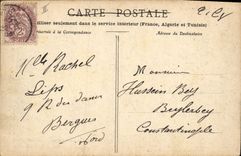 CARTE POSTALE
utiliser seulement dans le service intérieur (France, Algérie et Tunisie)
Réservée à la Correspondance
Adresse du Destinataire
Melle Rachel
9 R des dames
Bergues
Nord
Monsieur
Hussein Bey
Beylerbey
Constantinople